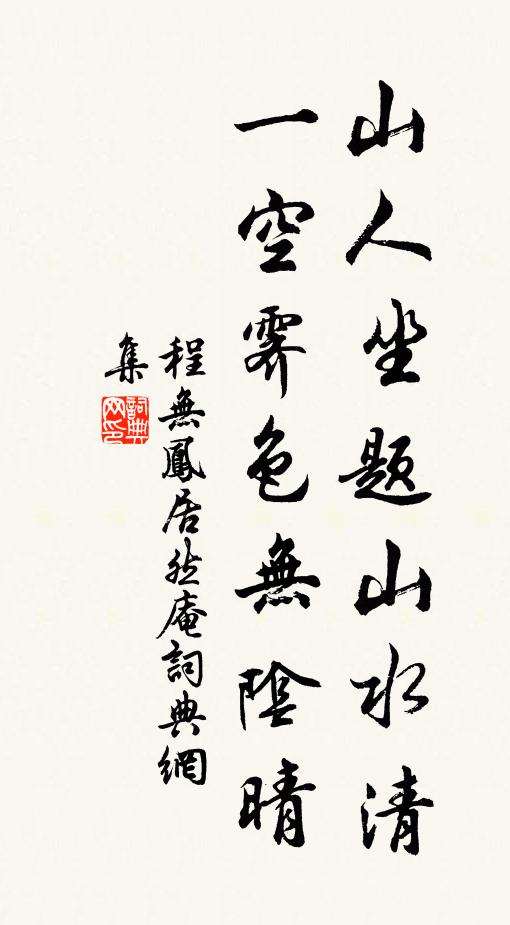 山人坐題山水清
一空霽色無陰晴
程無鳳居然庵詞典網
集
詞典網印